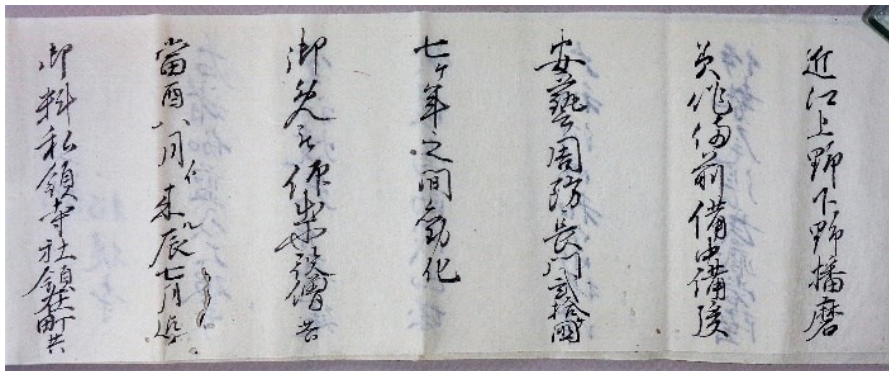 近江上野下野播磨
美作備前備中備後
安藝周防長門貳拾國
七ケ年之間勧化
御免被仰出役僧共
當酉八月ゟ来ル辰七月迄
御料私領寺社領在町共